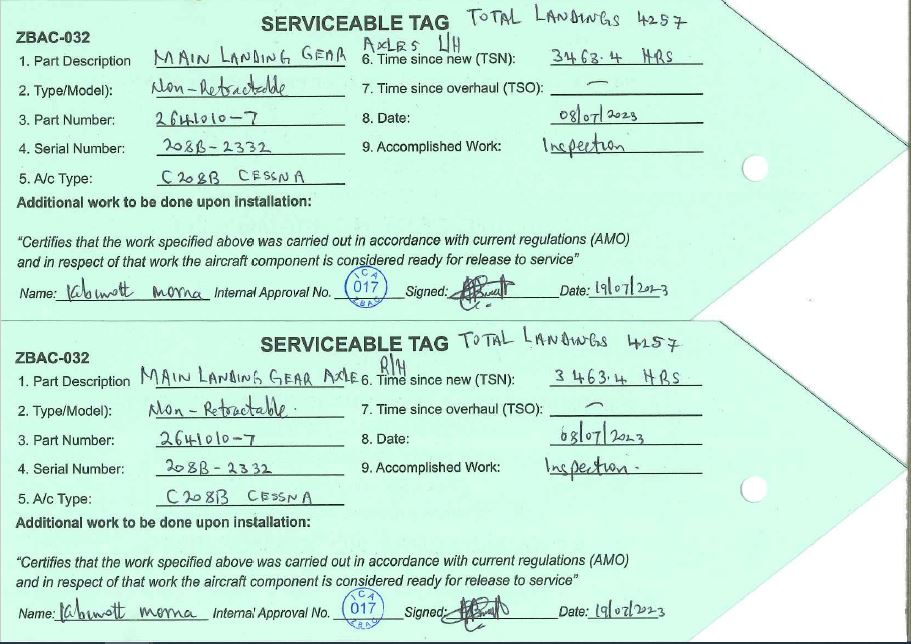 SERVICEABLE TAG TOTAL LANDINGS 4257
ZBAC-032
1. Part Description MAIN LANDING GEAR AXLES L/H 6. Time since new (TSN): 3463.4 HRS
2. Type/Model): Non-Retractable 7. Time since overhaul (TSO): —
3. Part Number: 2641010-7 8. Date: 08/07/2023
4. Serial Number: 208B-2332 9. Accomplished Work: Inspection
5. A/c Type: C208B CESSNA
Additional work to be done upon installation:
"Certifies that the work specified above was carried out in accordance with current regulations (AMO)
and in respect of that work the aircraft component is considered ready for release to service"
Name: Internal Approval No. ICA 017 ZBAC Signed: Date: 19/07/2023
SERVICEABLE TAG TOTAL LANDINGS 4257
ZBAC-032
1. Part Description MAIN LANDING GEAR AXLE R/H 6. Time since new (TSN): 3463.4 HRS
2. Type/Model): Non-Retractable. 7. Time since overhaul (TSO): —
3. Part Number: 2641010-7 8. Date: 08/07/2023
4. Serial Number: 208B-2332 9. Accomplished Work: Inspection.
5. A/c Type: C208B CESSNA
Additional work to be done upon installation:
"Certifies that the work specified above was carried out in accordance with current regulations (AMO)
and in respect of that work the aircraft component is considered ready for release to service"
Name: Internal Approval No. ICA 017 ZBAC Signed: Date: 19/07/2023